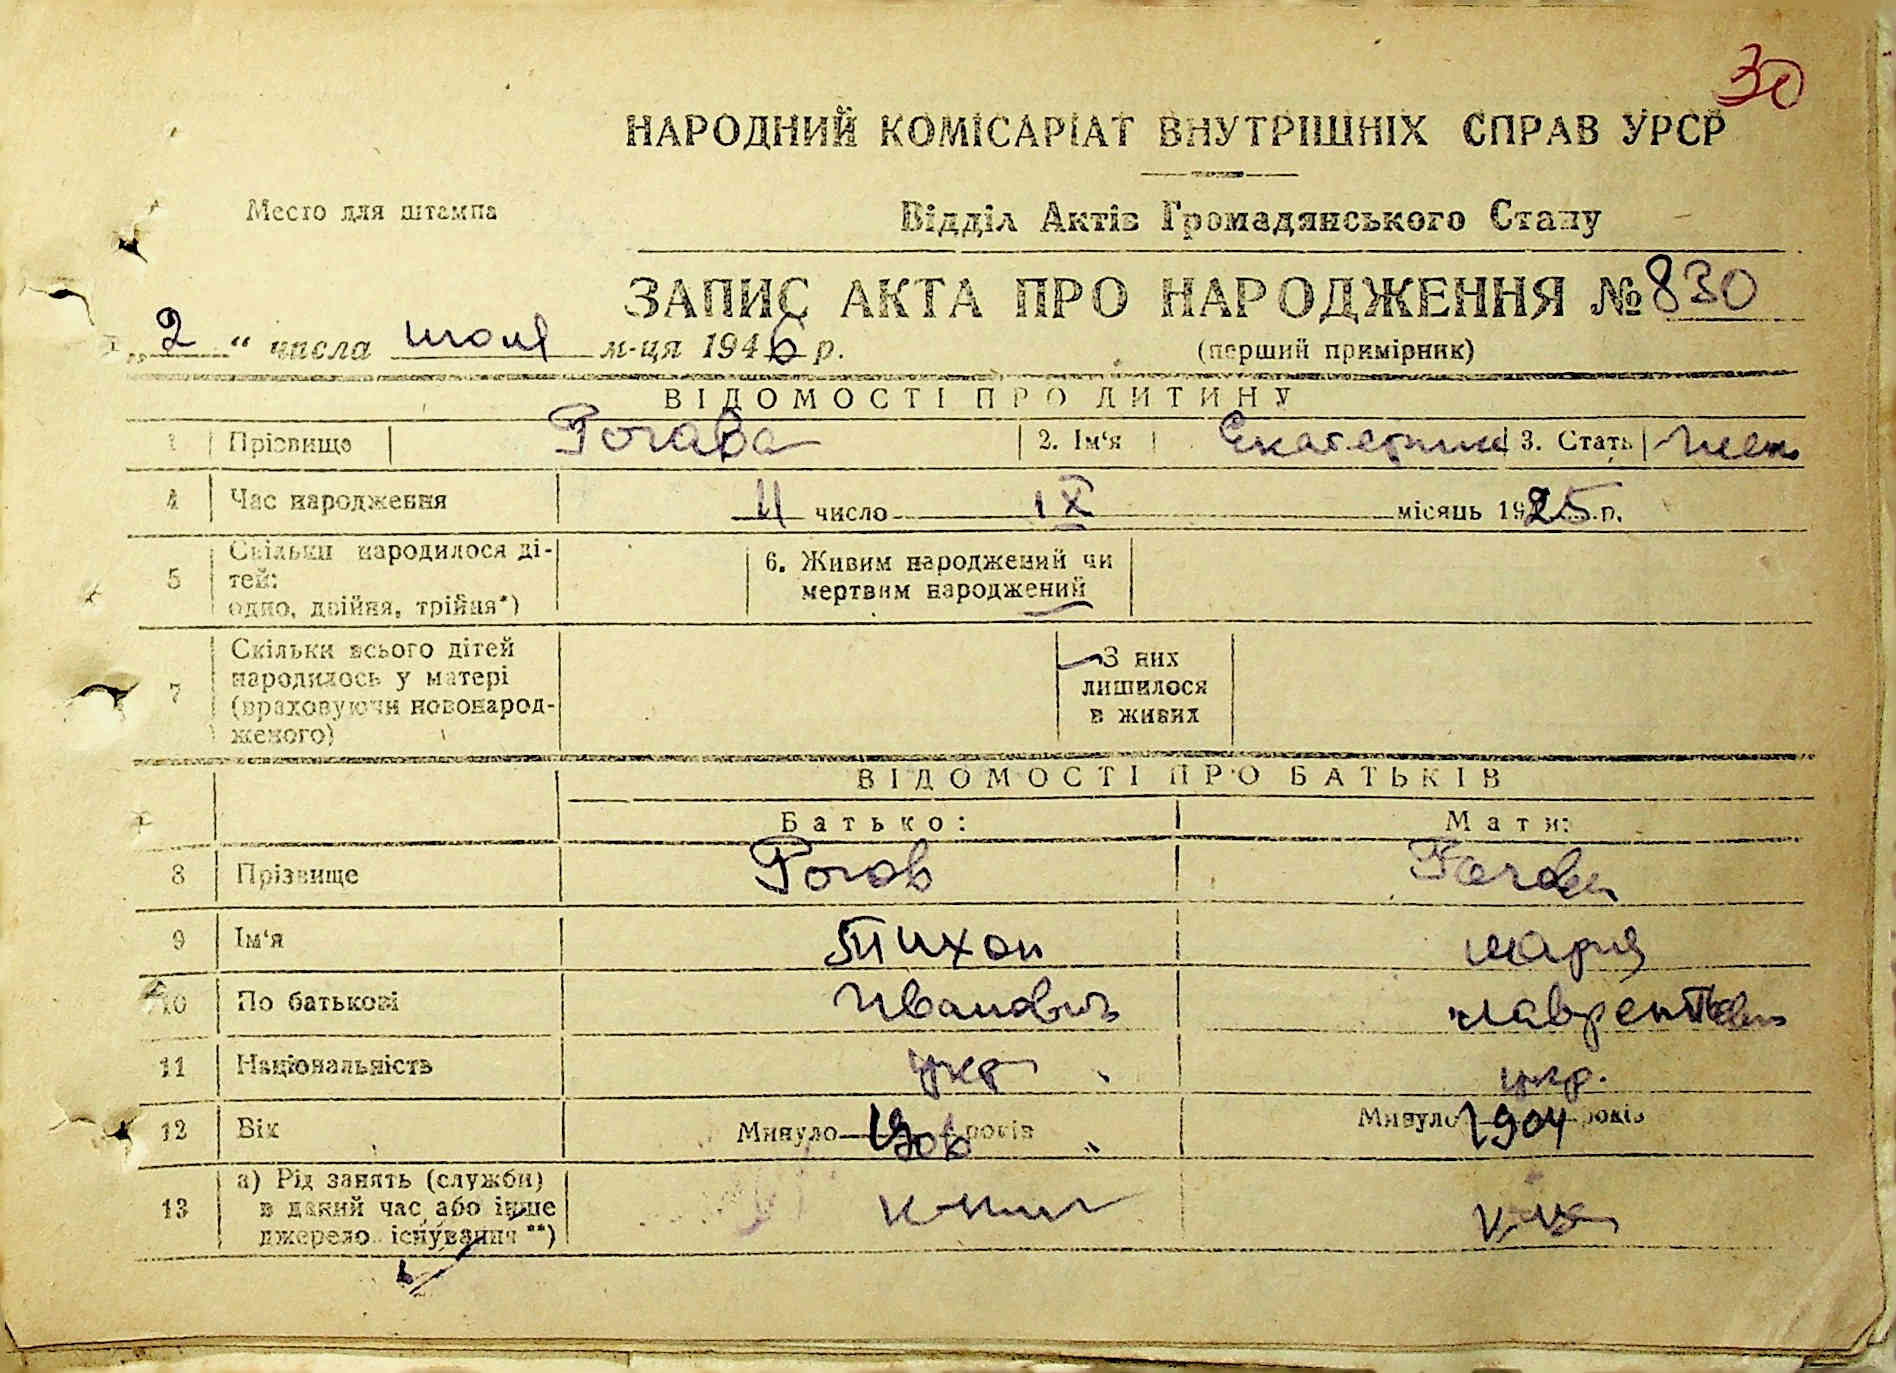 30
НАРОДНИЙ КОМІСАРІАТ ВНУТРІШНІХ СПРАВ УРСР
Место для штампа
Відділ Актів Громадянського Стану
ЗАПИС АКТА ПРО НАРОДЖЕННЯ № 830
„2“ числа июля м-ця 1946 р.
(перший примірник)
ВІДОМОСТІ ПРО ДИТИНУ
1 Прізвище Рогова 2. Ім‘я Екатерина 3. Стать жен
4 Час народження 11 число IX місяць 1925 р.
5 Скільки народилося ді-
тей:
одно, двійня, трійня*)
6. Живим народжений чи
мертвим народжений
7 Скільки всього дітей
народилось у матері
(враховуючи новонарод-
женого)
З них
лишилося
в живих
ВІДОМОСТІ ПРО БАТЬКІВ
Батько: Мати:
8 Прізвище Рогов Рогова
9 Ім‘я Тихон Мария
10 По батькові Иванович Лаврентьевн
11 Національність укр укр.
12 Вік Минуло 1906 років Минуло 1904 років
13 а) Рід занять (служби)
в даний час або інше
джерело існування **)